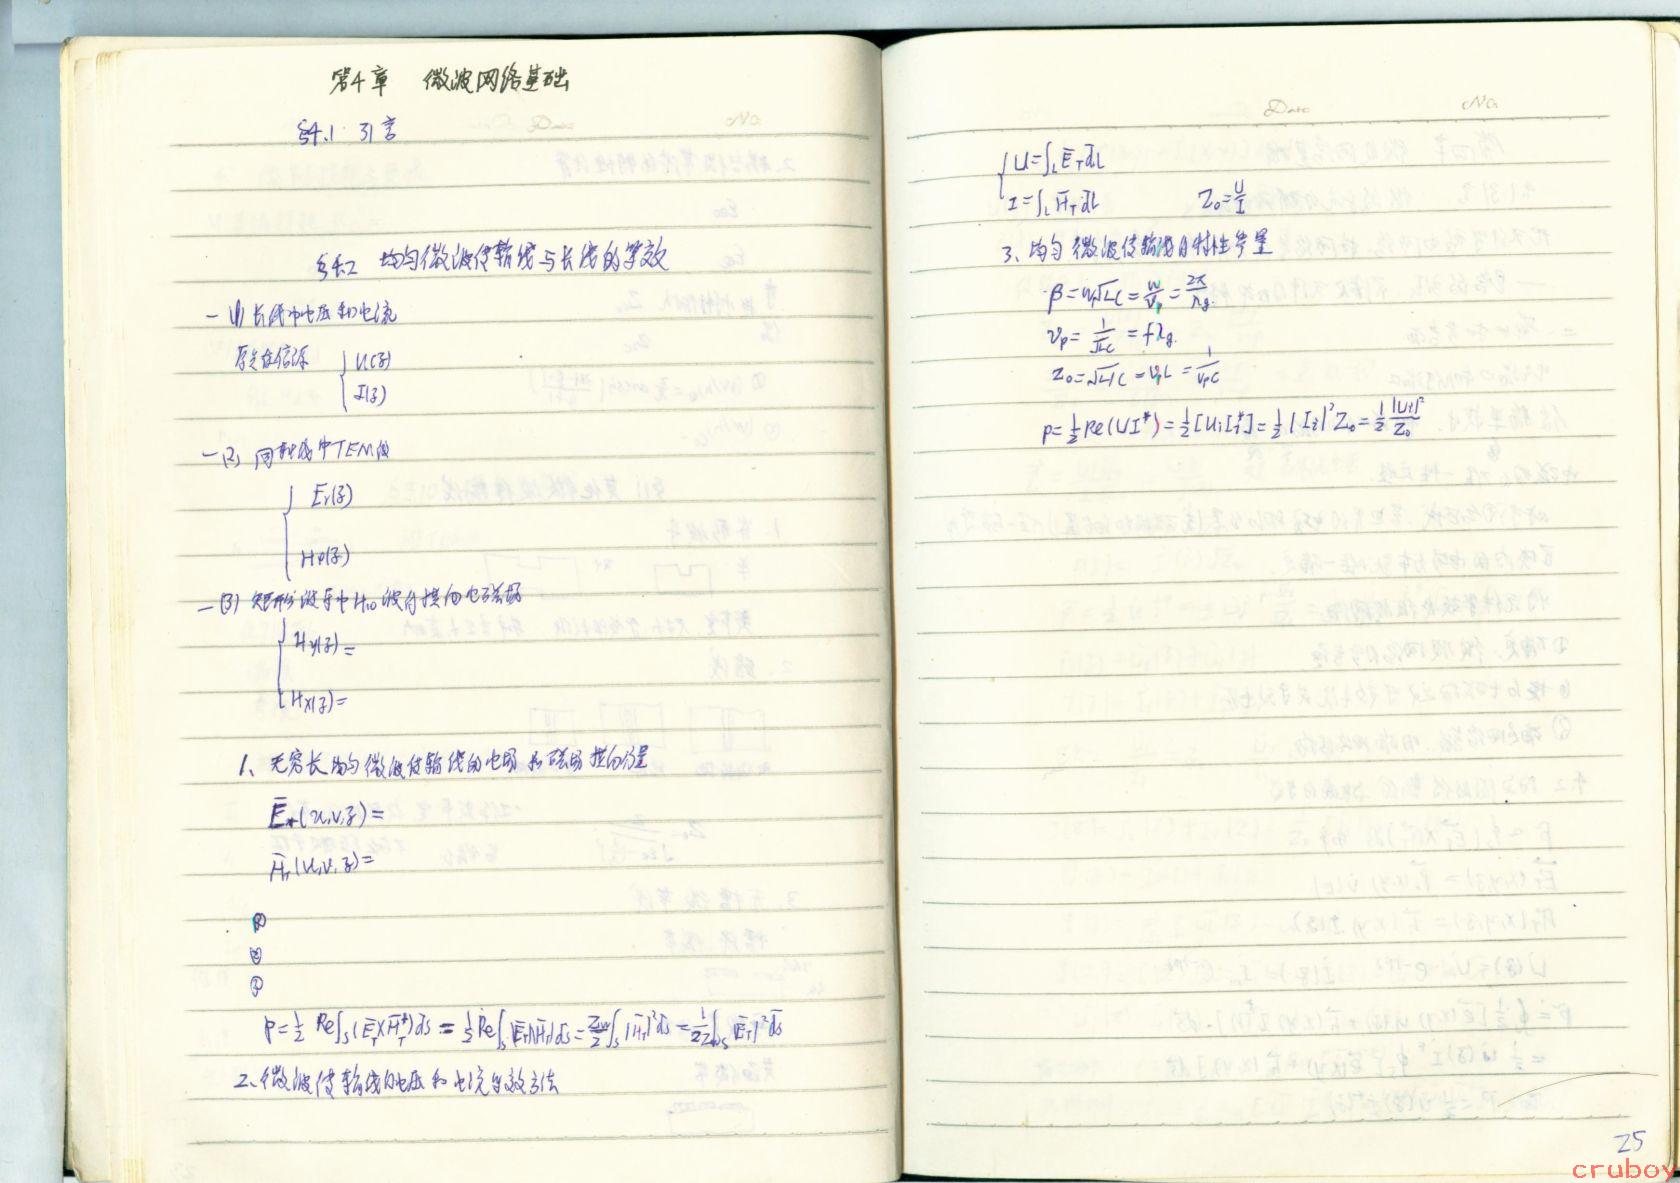 第4章 微波网络基础
Date No.
§4.1 引言
§4.2 均匀微波传输线与长线的等效
一(1) 长线中电压和电流
原点在信源 { U(z)
I(z)
一(2) 同轴线中TEM波
{ Er(z)
Hφ(z)
一(3) 矩形波导中H10波的横向电磁场
{ Hy(z)=
Hx(z)=
1、无穷长均匀微波传输线的电场和磁场横向分量
E̅T(u,v,z)=
H̅T(u,v,z)=
②
③
P=½ Re∫s(E̅T×H̅T*)ds = ½Re∫s|E̅T||H̅T|ds = Zw/2 ∫s|H̅T|²ds = 1/2Zw ∫s|E̅T|²ds
2、微波传输线的电压和电流等效方法
Date No.
{ U=∫L E̅T dL
I=∫L H̅T dL Z0=U/I
3、均匀微波传输线的特性参量
β=ω√LC=ω/Vp=2π/λg.
Vp=1/√LC=fλg.
Z0=√L/C=VpL=1/VpC
P=½Re(UI*)=½[UiIi*]=½|Ii|²Z0=½|Ui|²/Z0
25
cruboy